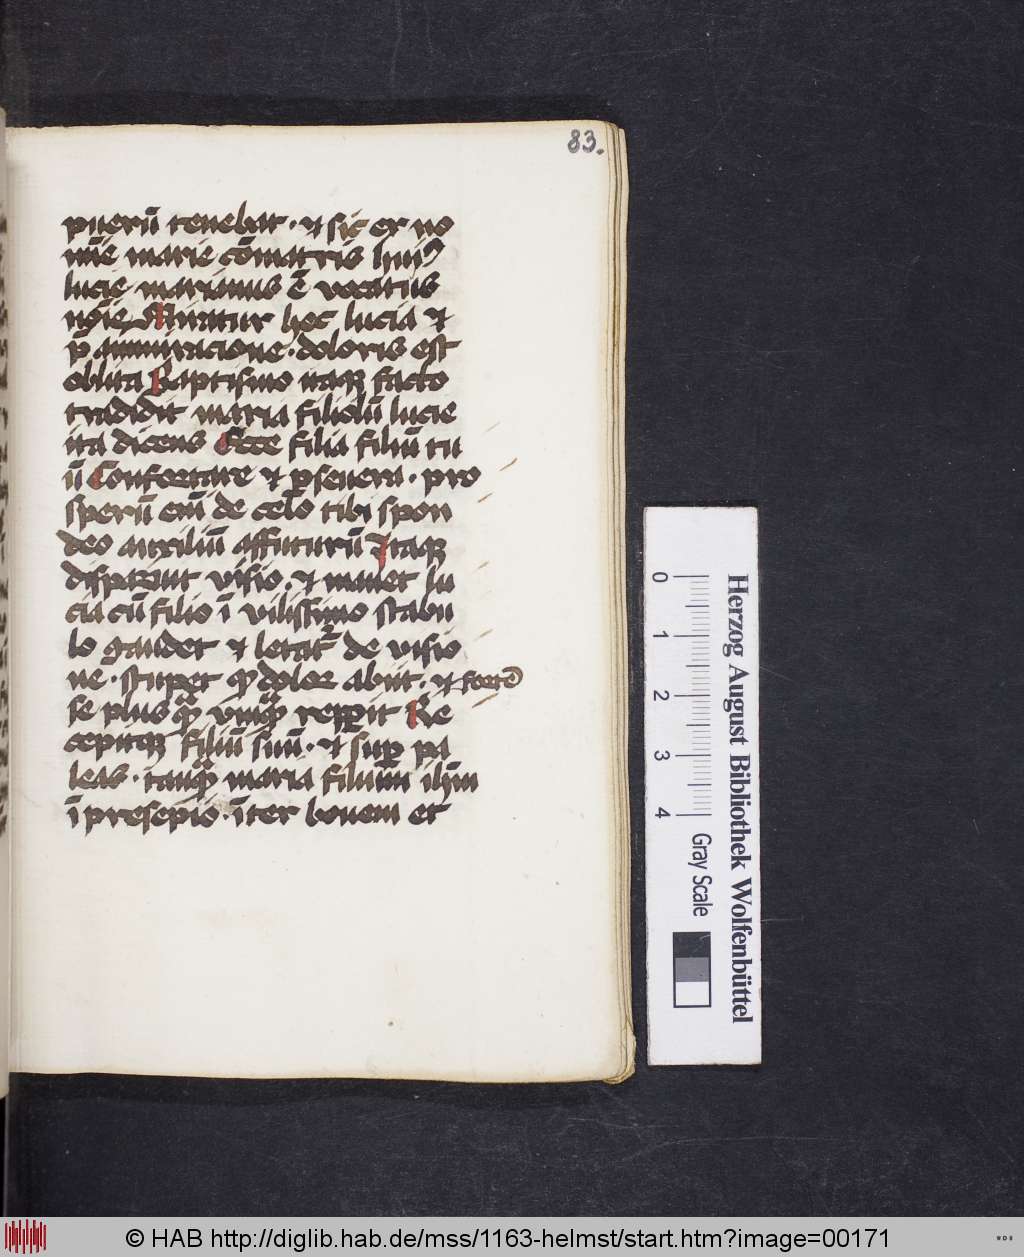 83.
puerū tenebat · et sic ex no
mīe marie cōmatris huiꝰ
lucie marianus ē vocatus
noīe Miratur hec lucia et
p̄ ammiracione · doloris est
oblita Baptismo itaqꝫ facto
tradidit maria filiolū lucie
ita dicens Ecce filia filiū tu
ū Confortare et ꝑseuera · pro
sperū enī de celo tibi spon
deo auxiliū affuturū Itaqꝫ
disparuit visio · et manet lu
cia cū filio ī vilissimo stabu
lo gaudet et letat̄ de visio
ne · stupet ꝙ dolor abiit · et fortē
se plus qͣꝫ vnqͣꝫ repperit Re
cepitqꝫ filiū suū · et suꝑ pa
leas · tanqͣꝫ maria filium ihm̄
ī presepio · īter bouem et
Herzog August Bibliothek Wolfenbüttel
0 1 2 3 4 Gray Scale
© HAB http://diglib.hab.de/mss/1163-helmst/start.htm?image=00171